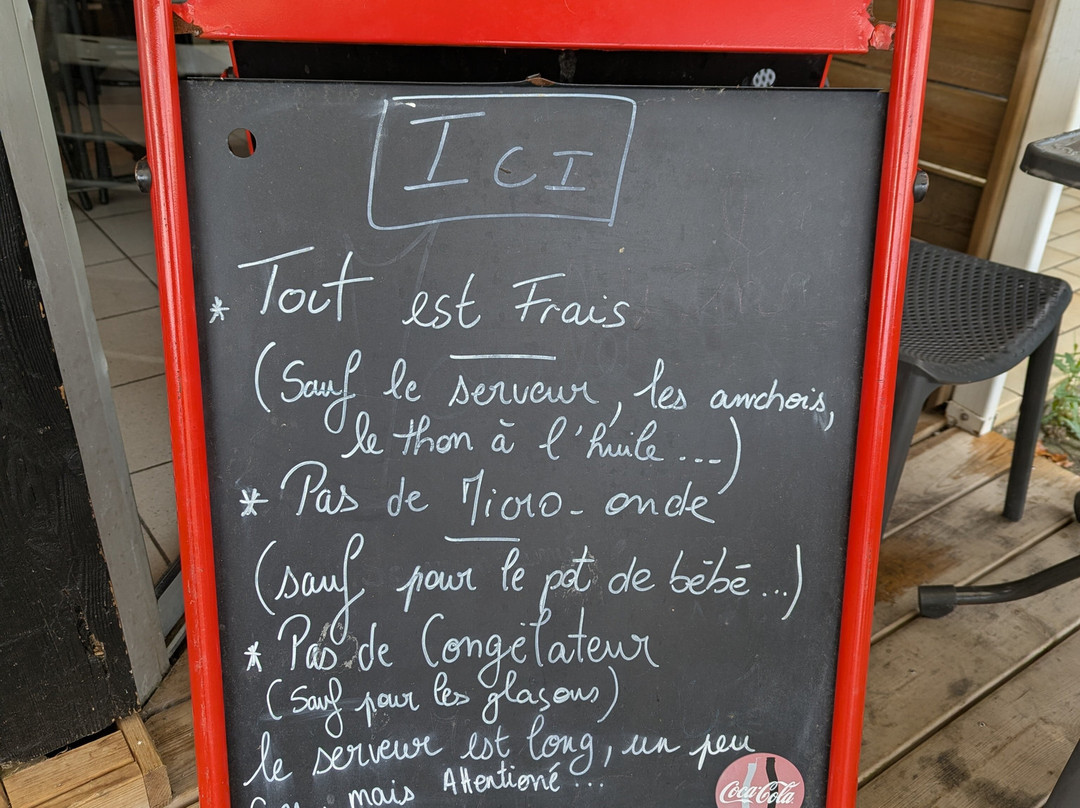 ICI
* Tout est Frais
(Sauf le serveur, les anchois,
le thon à l'huile ...)
* Pas de Micro-onde
(sauf pour le pot de bébé...)
* Pas de Congélateur
(Sauf pour les glaçons)
le serveur est long, un peu
mais Attentioné ...
Coca-Cola